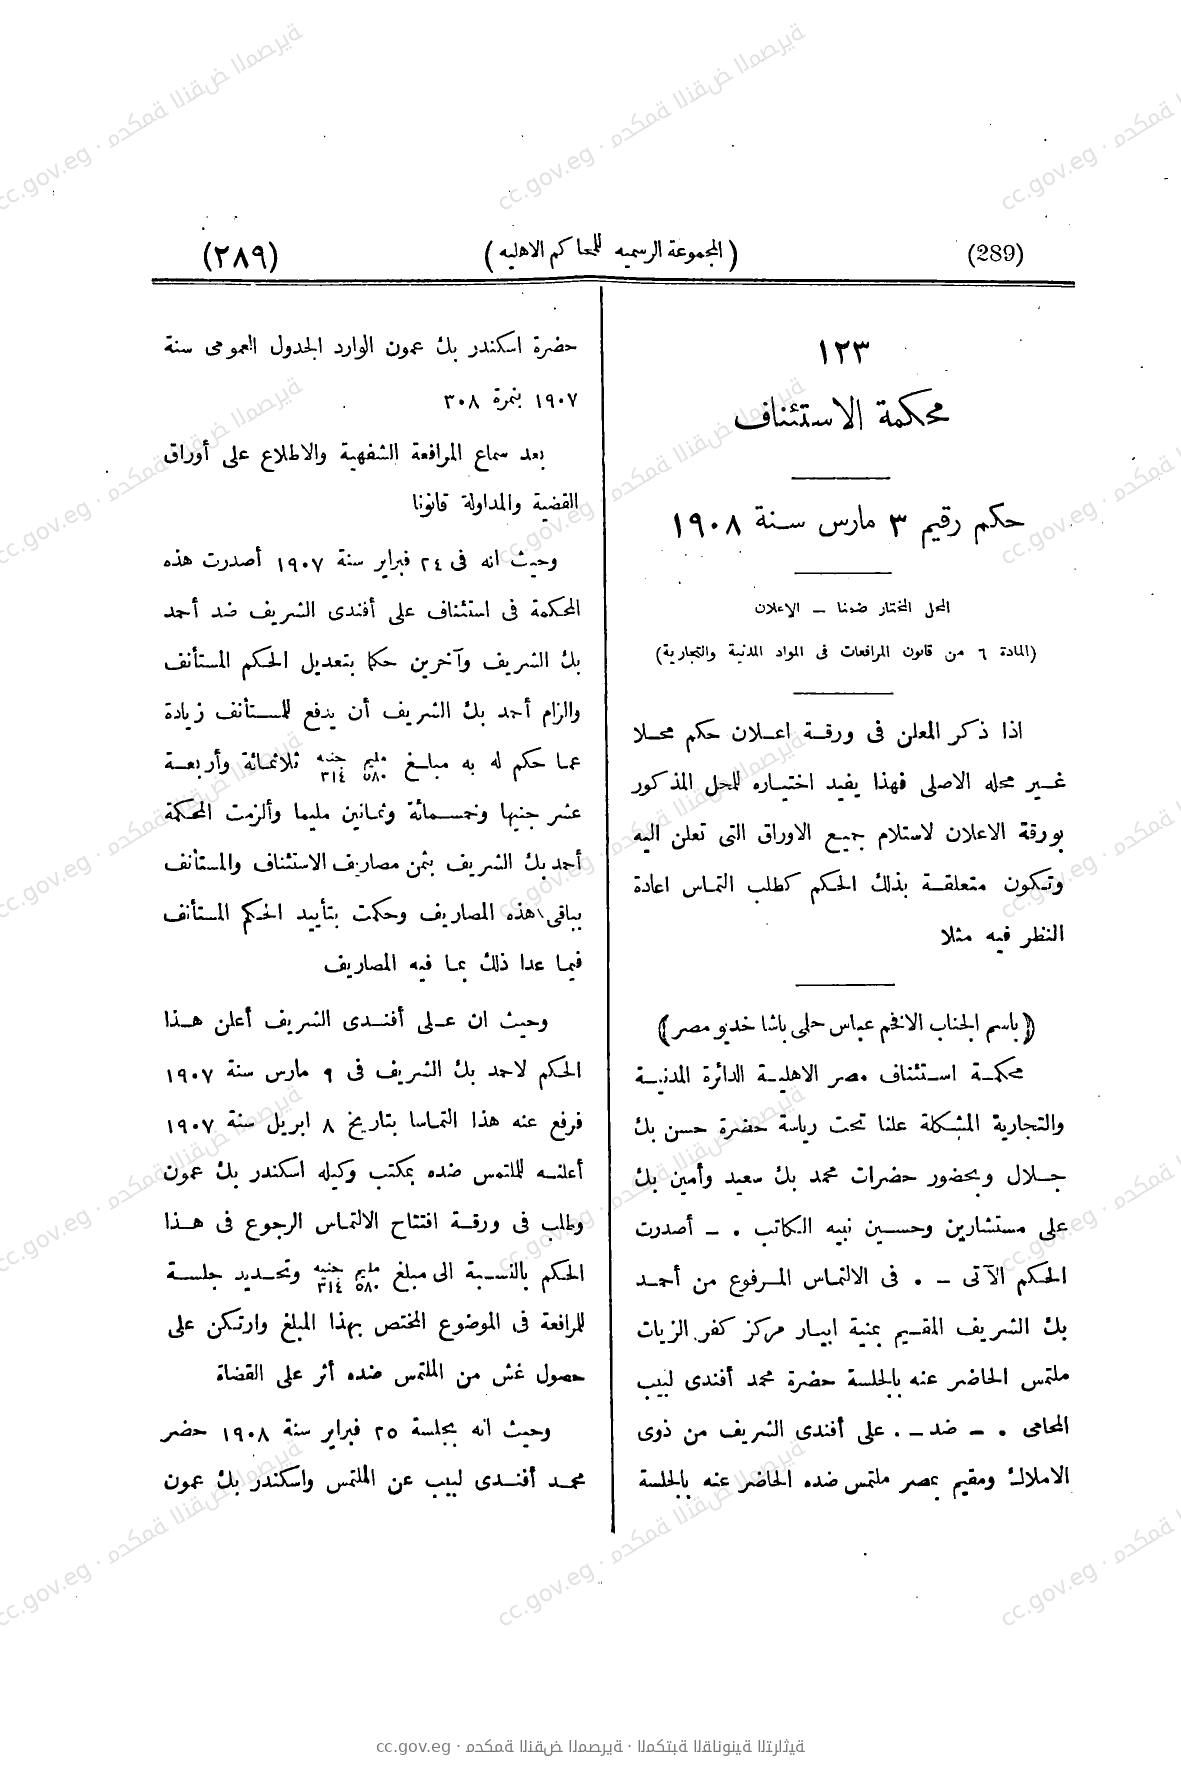 (289) (المجموعة الرسميه للمحاكم الاهليه) (٢٨٩)
١٢٣
محكمة الاستئناف
حكم رقيم ٣ مارس سنة ١٩٠٨
المحل المختار ضمنا – الاعلان
(المادة ٦ من قانون المرافعات فى المواد المدنية والتجارية)
اذا ذكر المعلن فى ورقة اعلان حكم محلا
غير محله الاصلى فهذا يفيد اختياره للمحل المذكور
بورقة الاعلان لاستلام جميع الاوراق التى تعلن اليه
وتكون متعلقة بذلك الحكم كطلب التماس اعادة
النظر فيه مثلا
(باسم الجناب الافخم عباس حلمى باشا خديو مصر)
محكمة استئناف مصر الاهلية الدائرة المدنية
والتجارية المشكلة علنا تحت رياسة حضرة حسن بك
جلال وبحضور حضرات محمد بك سعيد وأمين بك
على مستشارين وحسين نبيه الكاتب . – أصدرت
الحكم الآتى – . فى الالتماس المرفوع من أحمد
بك الشريف المقيم بمنية ابيار مركز كفر الزيات
ملتمس الحاضر عنه بالجلسة حضرة محمد أفندى لبيب
المحامى . – ضد – . على أفندى الشريف من ذوى
الاملاك ومقيم بمصر ملتمس ضده الحاضر عنه بالجلسة
حضرة اسكندر بك عمون الوارد الجدول العمومى سنة
١٩٠٧ بنمرة ٣٠٨
بعد سماع المرافعة الشفهية والاطلاع على أوراق
القضية والمداولة قانونا
وحيث انه فى ٢٤ فبراير سنة ١٩٠٧ أصدرت هذه
المحكمة فى استئناف على أفندى الشريف ضد أحمد
بك الشريف وآخرين حكما بتعديل الحكم المستأنف
والزام أحمد بك الشريف أن يدفع للمستأنف زيادة
عما حكم له به مبلغ مليم ٥٨٠ جنيه ٣١٤ ثلاثمائة وأربعة
عشر جنيها وخمسمائة وثمانين مليما وألزمت المحكمة
أحمد بك الشريف بثمن مصاريف الاستئناف والمستأنف
بباقى هذه المصاريف وحكمت بتأييد الحكم المستأنف
فيما عدا ذلك بما فيه المصاريف
وحيث ان على أفندى الشريف أعلن هذا
الحكم لاحمد بك الشريف فى ٩ مارس سنة ١٩٠٧
فرفع عنه هذا التماسا بتاريخ ٨ ابريل سنة ١٩٠٧
أعلنه للملتمس ضده بمكتب وكيله اسكندر بك عمون
وطلب فى ورقة افتتاح الالتماس الرجوع فى هذا
الحكم بالنسبة الى مبلغ مليم ٥٨٠ جنيه ٣١٤ وتحديد جلسة
للمرافعة فى الموضوع المختص بهذا المبلغ وارتكن على
حصول غش من الملتمس ضده أثر على القضاة
وحيث انه بجلسة ٢٥ فبراير سنة ١٩٠٨ حضر
محمد أفندى لبيب عن الملتمس واسكندر بك عمون
cc.gov.eg · محكمة النقض المصرية · المكتبة القانونية التراثية